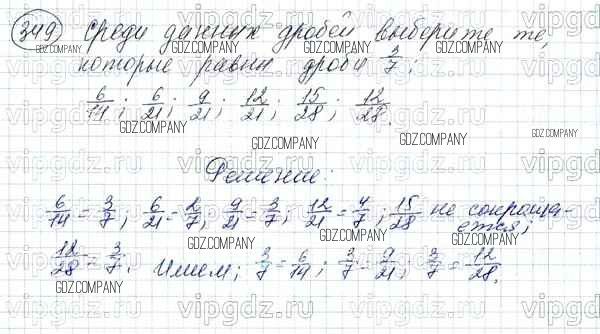 349 Среди данных дробей выберите те,
которые равны дроби 3/7:
6/14; 6/21; 9/21; 12/21; 15/28; 12/28.
Решение:
6/14 = 3/7; 6/21 = 2/7; 9/21 = 3/7; 12/21 = 4/7; 15/28 не сокраща-
ется;
12/28 = 3/7. Имеем; 3/7 = 6/14; 3/7 = 9/21; 3/7 = 12/28.